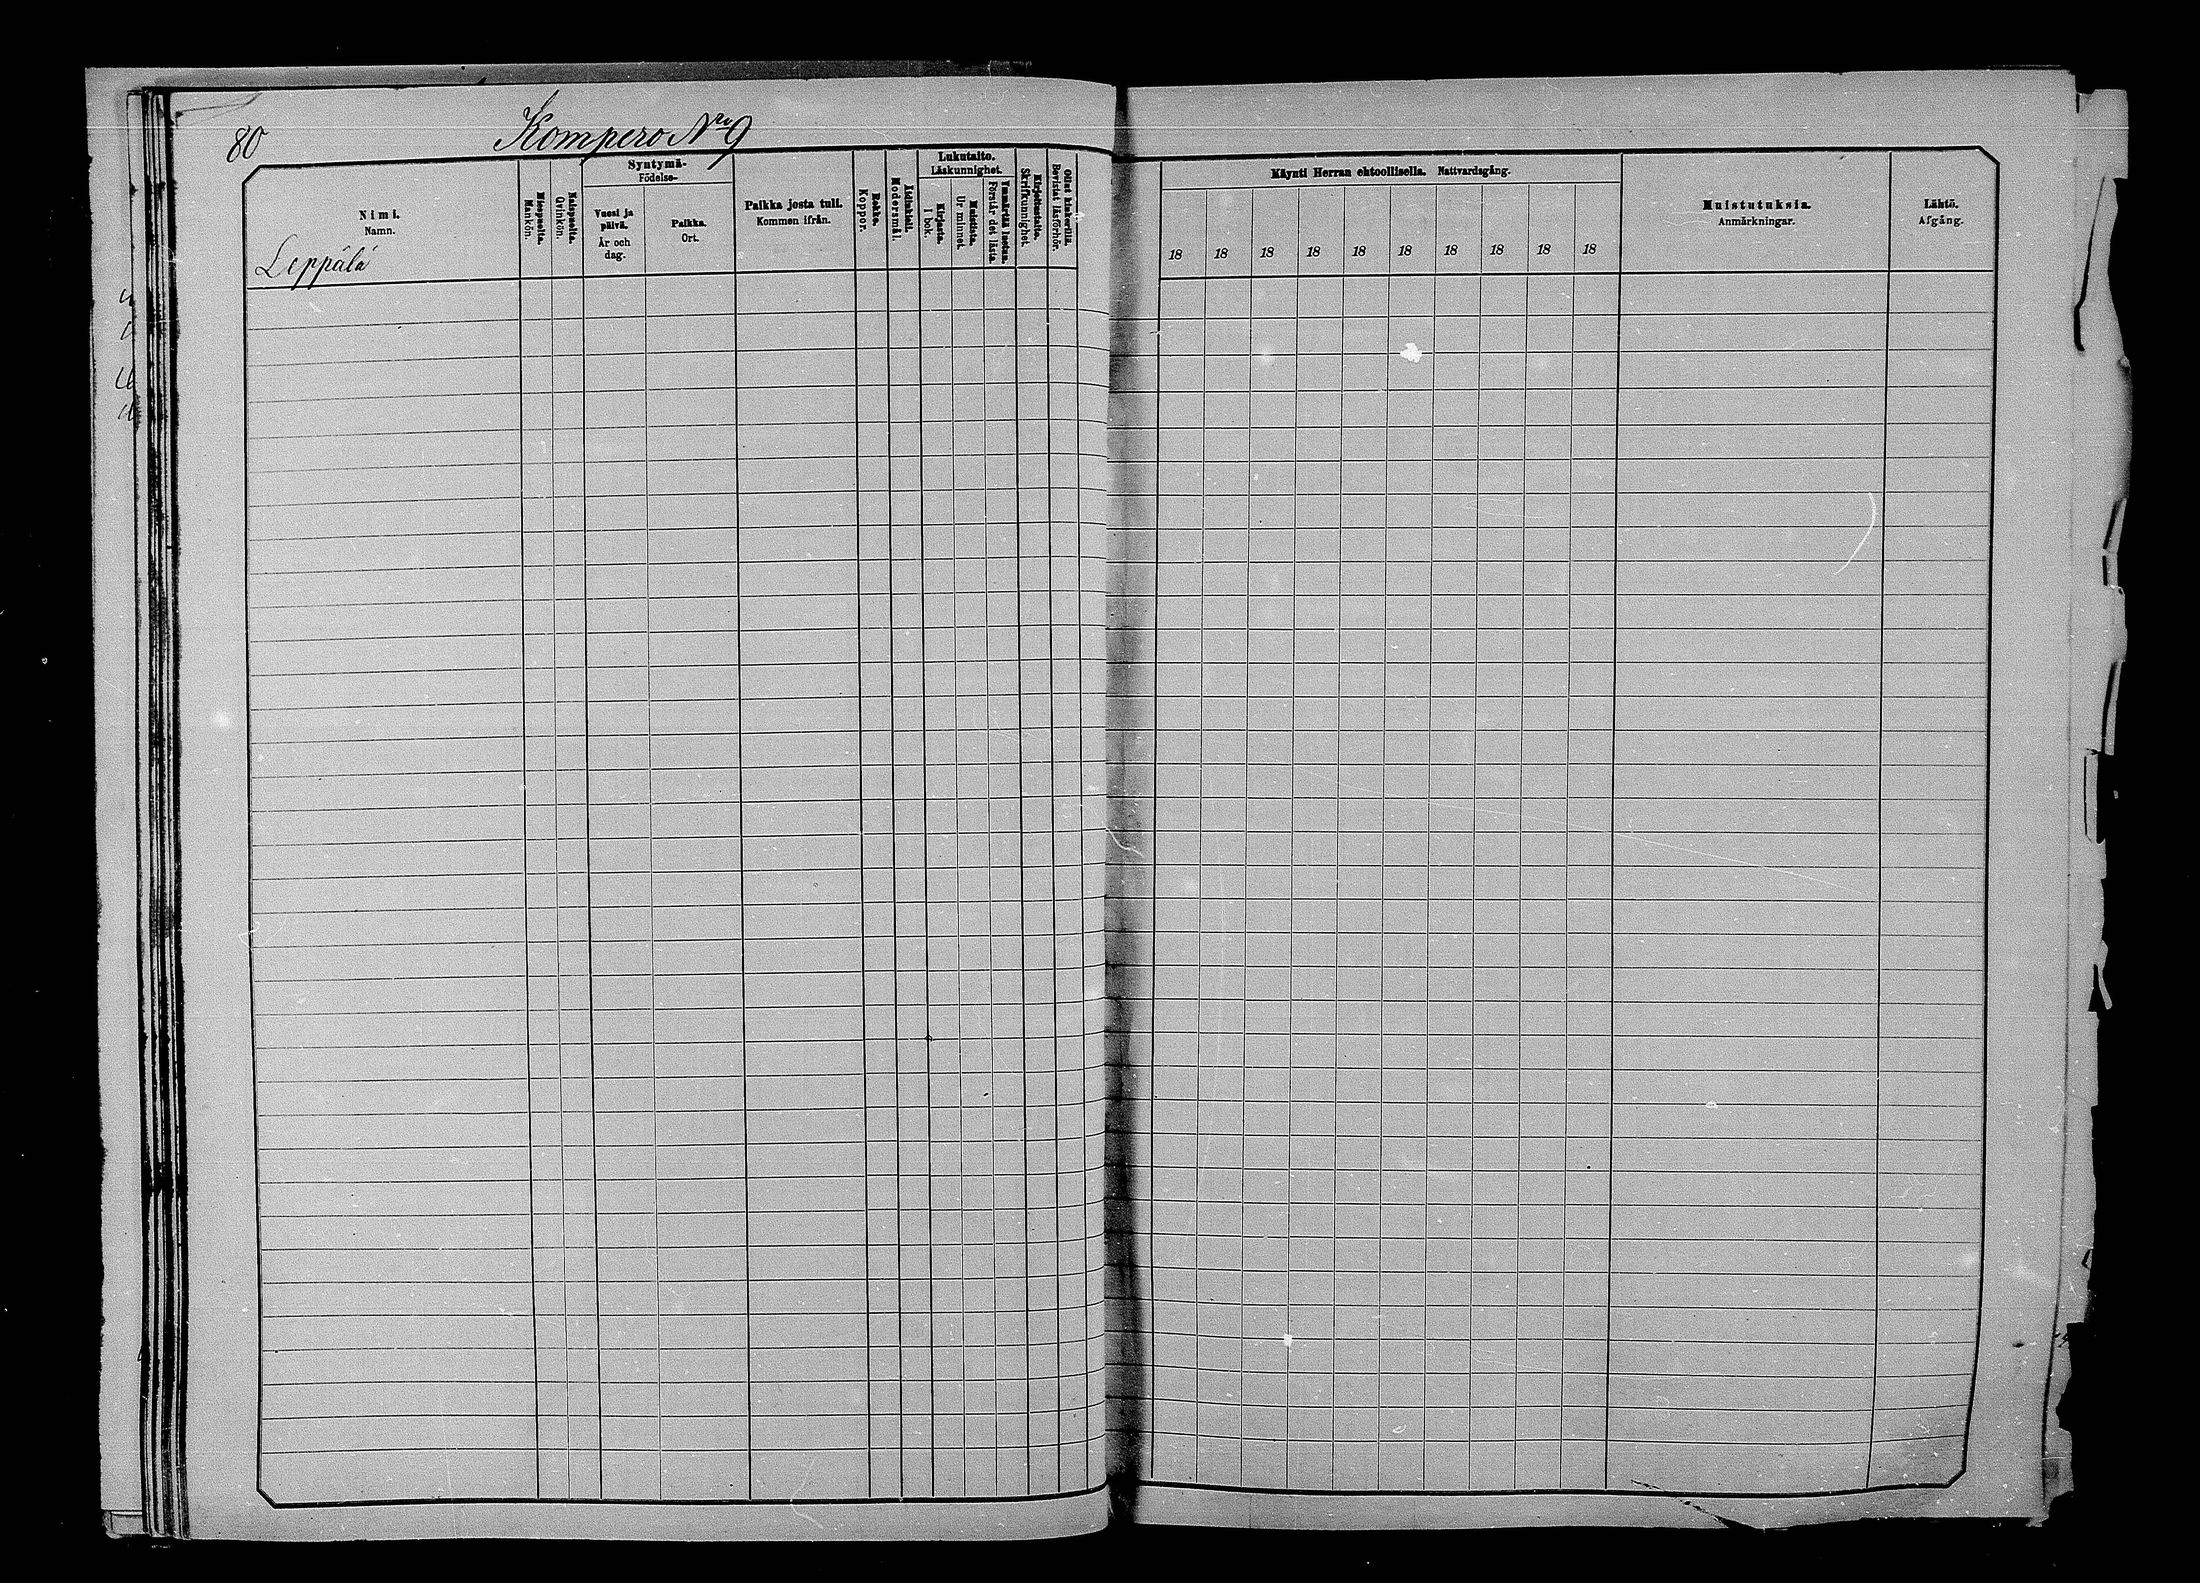 80
Kompero Nro 9
Nimi.
Namn.
Leppälä
Miespuolta.
Mankön.
Naispuolta.
Qvinkön.
Syntymä-
Födelse-
Vuosi ja
päivä.
År och
dag.
Paikka.
Ort.
Paikka josta tuli.
Kommen ifrån.
Rokko.
Koppor.
Äidinkieli.
Modersmål.
Lukutaito.
Läskunnighet.
Kirjasta.
I bok.
Muistista.
Ur minnet.
Ymmärtää luetun.
Förstår det lästa.
Kirjoitustaito.
Skrifkunnighet.
Ollut kinkerillä.
Bevistat läsförhör.
Käynti Herran ehtoollisella. Nattvardsgång.
18 18 18 18 18 18 18 18 18 18
Muistutuksia.
Anmärkningar.
Lähtö.
Afgång.